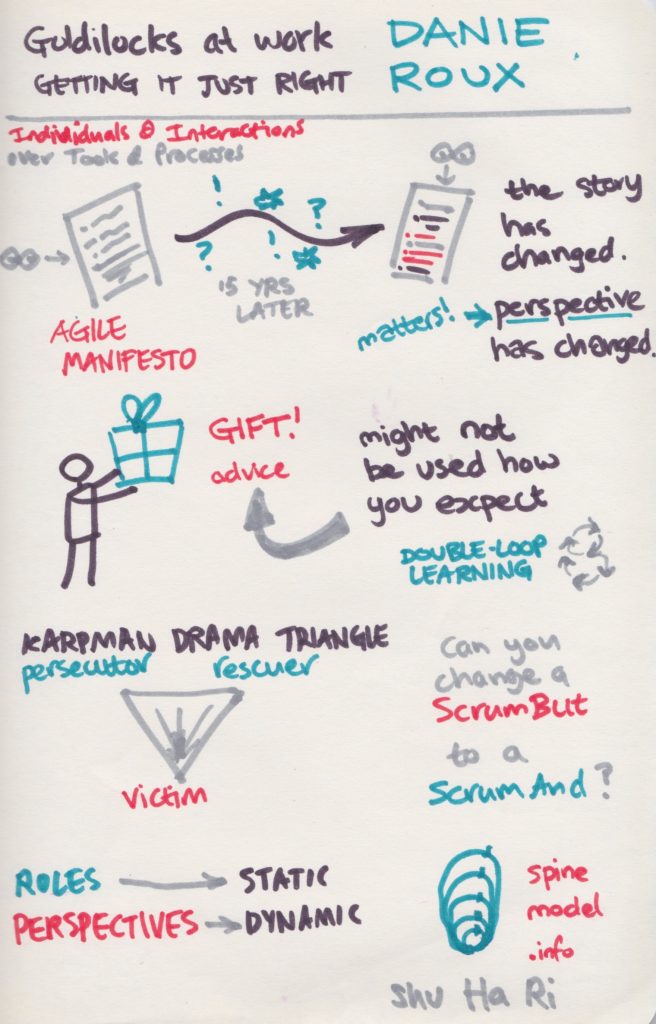 Guldilocks at work
GETTING IT JUST RIGHT
DANIE
ROUX
Individuals & Interactions
over Tools & Processes
!
?
!
?
15 YRS
LATER
AGILE
MANIFESTO
the story
has
changed.
matters! → perspective
has changed.
GIFT!
advice
might not
be used how
you expect
DOUBLE-LOOP
LEARNING
KARPMAN DRAMA TRIANGLE
persecutor rescuer
victim
Can you
change a
ScrumBut
to a
ScrumAnd?
ROLES → STATIC
PERSPECTIVES → DYNAMIC
spine
model
.info
Shu Ha Ri